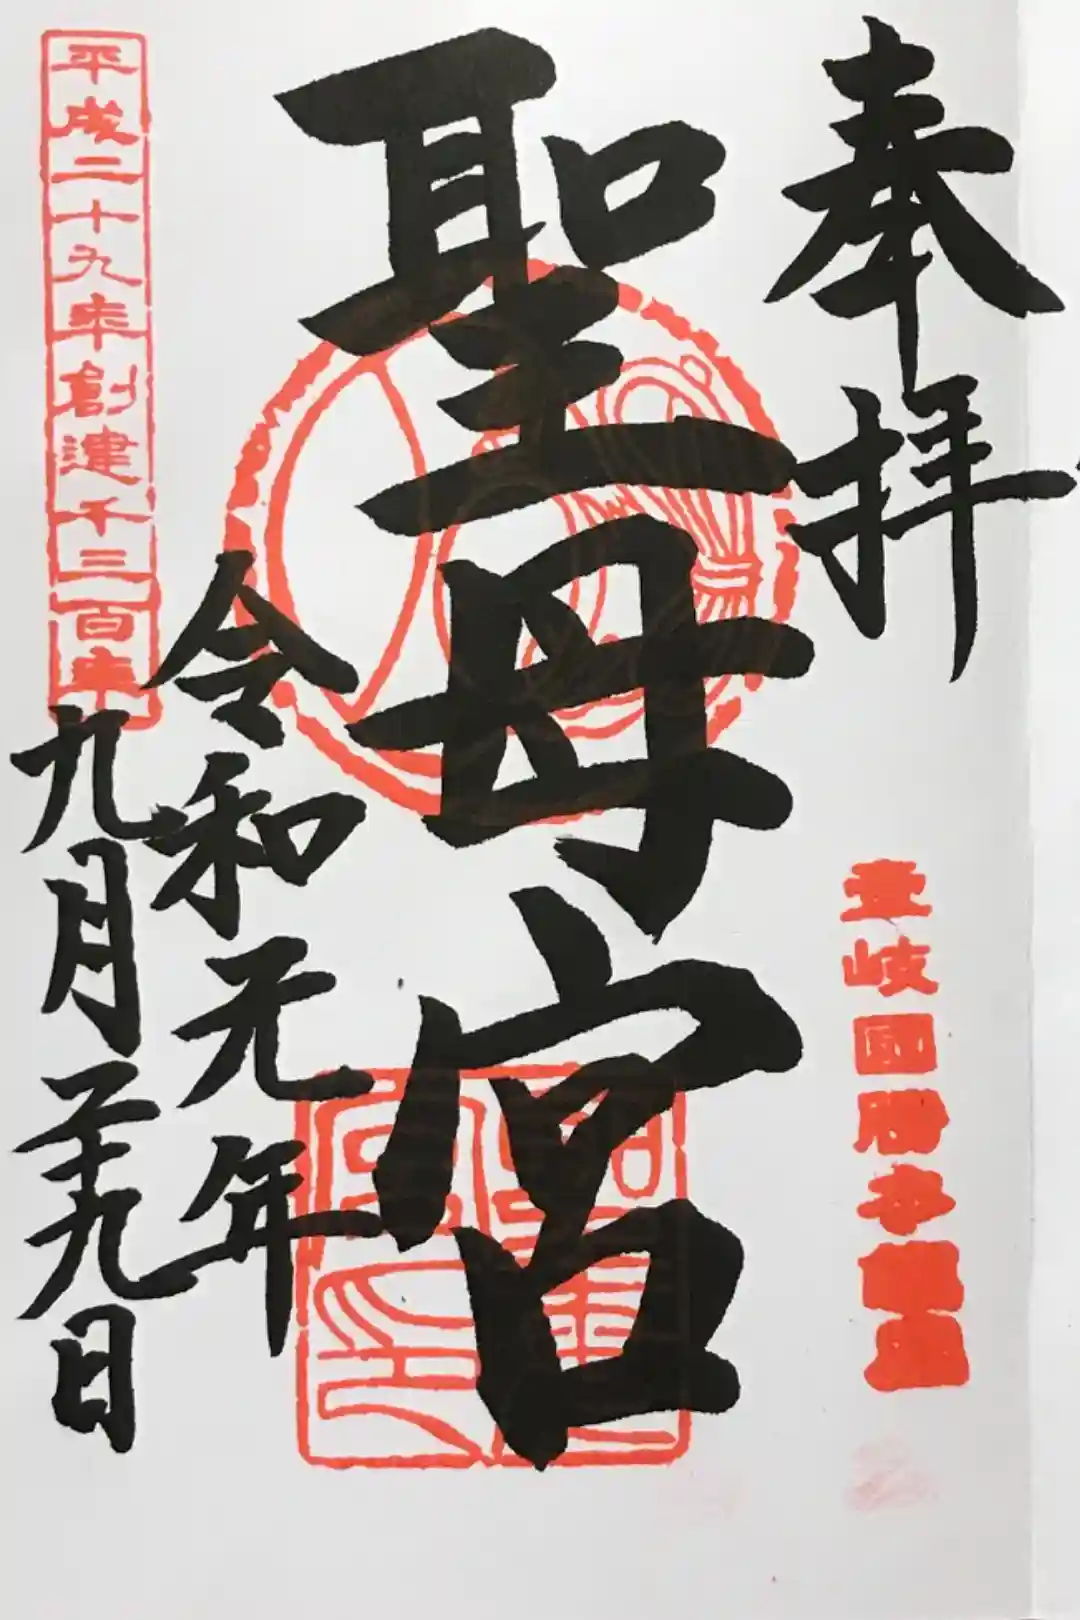 奉拝
壹岐國勝本
聖母宮
令和元年
九月二十九日
平成二十九年創建千三百年